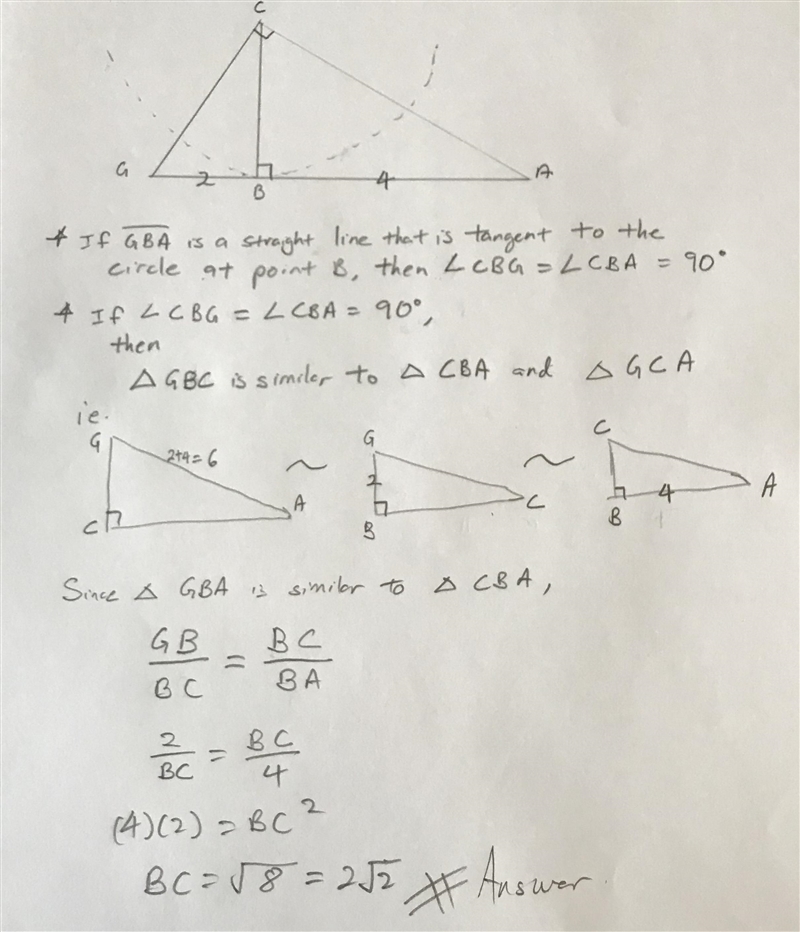 C
G 2 B 4 A
* If GBA is a straight line that is tangent to the
circle at point B, then ∠CBG = ∠CBA = 90°
* If ∠CBG = ∠CBA = 90°,
then
△GBC is similar to △CBA and △GCA
ie.
G 2+4=6 A C ~ G 2 B C ~ C B 4 A
Since △ GBA is similar to △ CBA,
GB/BC = BC/BA
2/BC = BC/4
(4)(2) = BC²
BC = √8 = 2√2 # Answer.